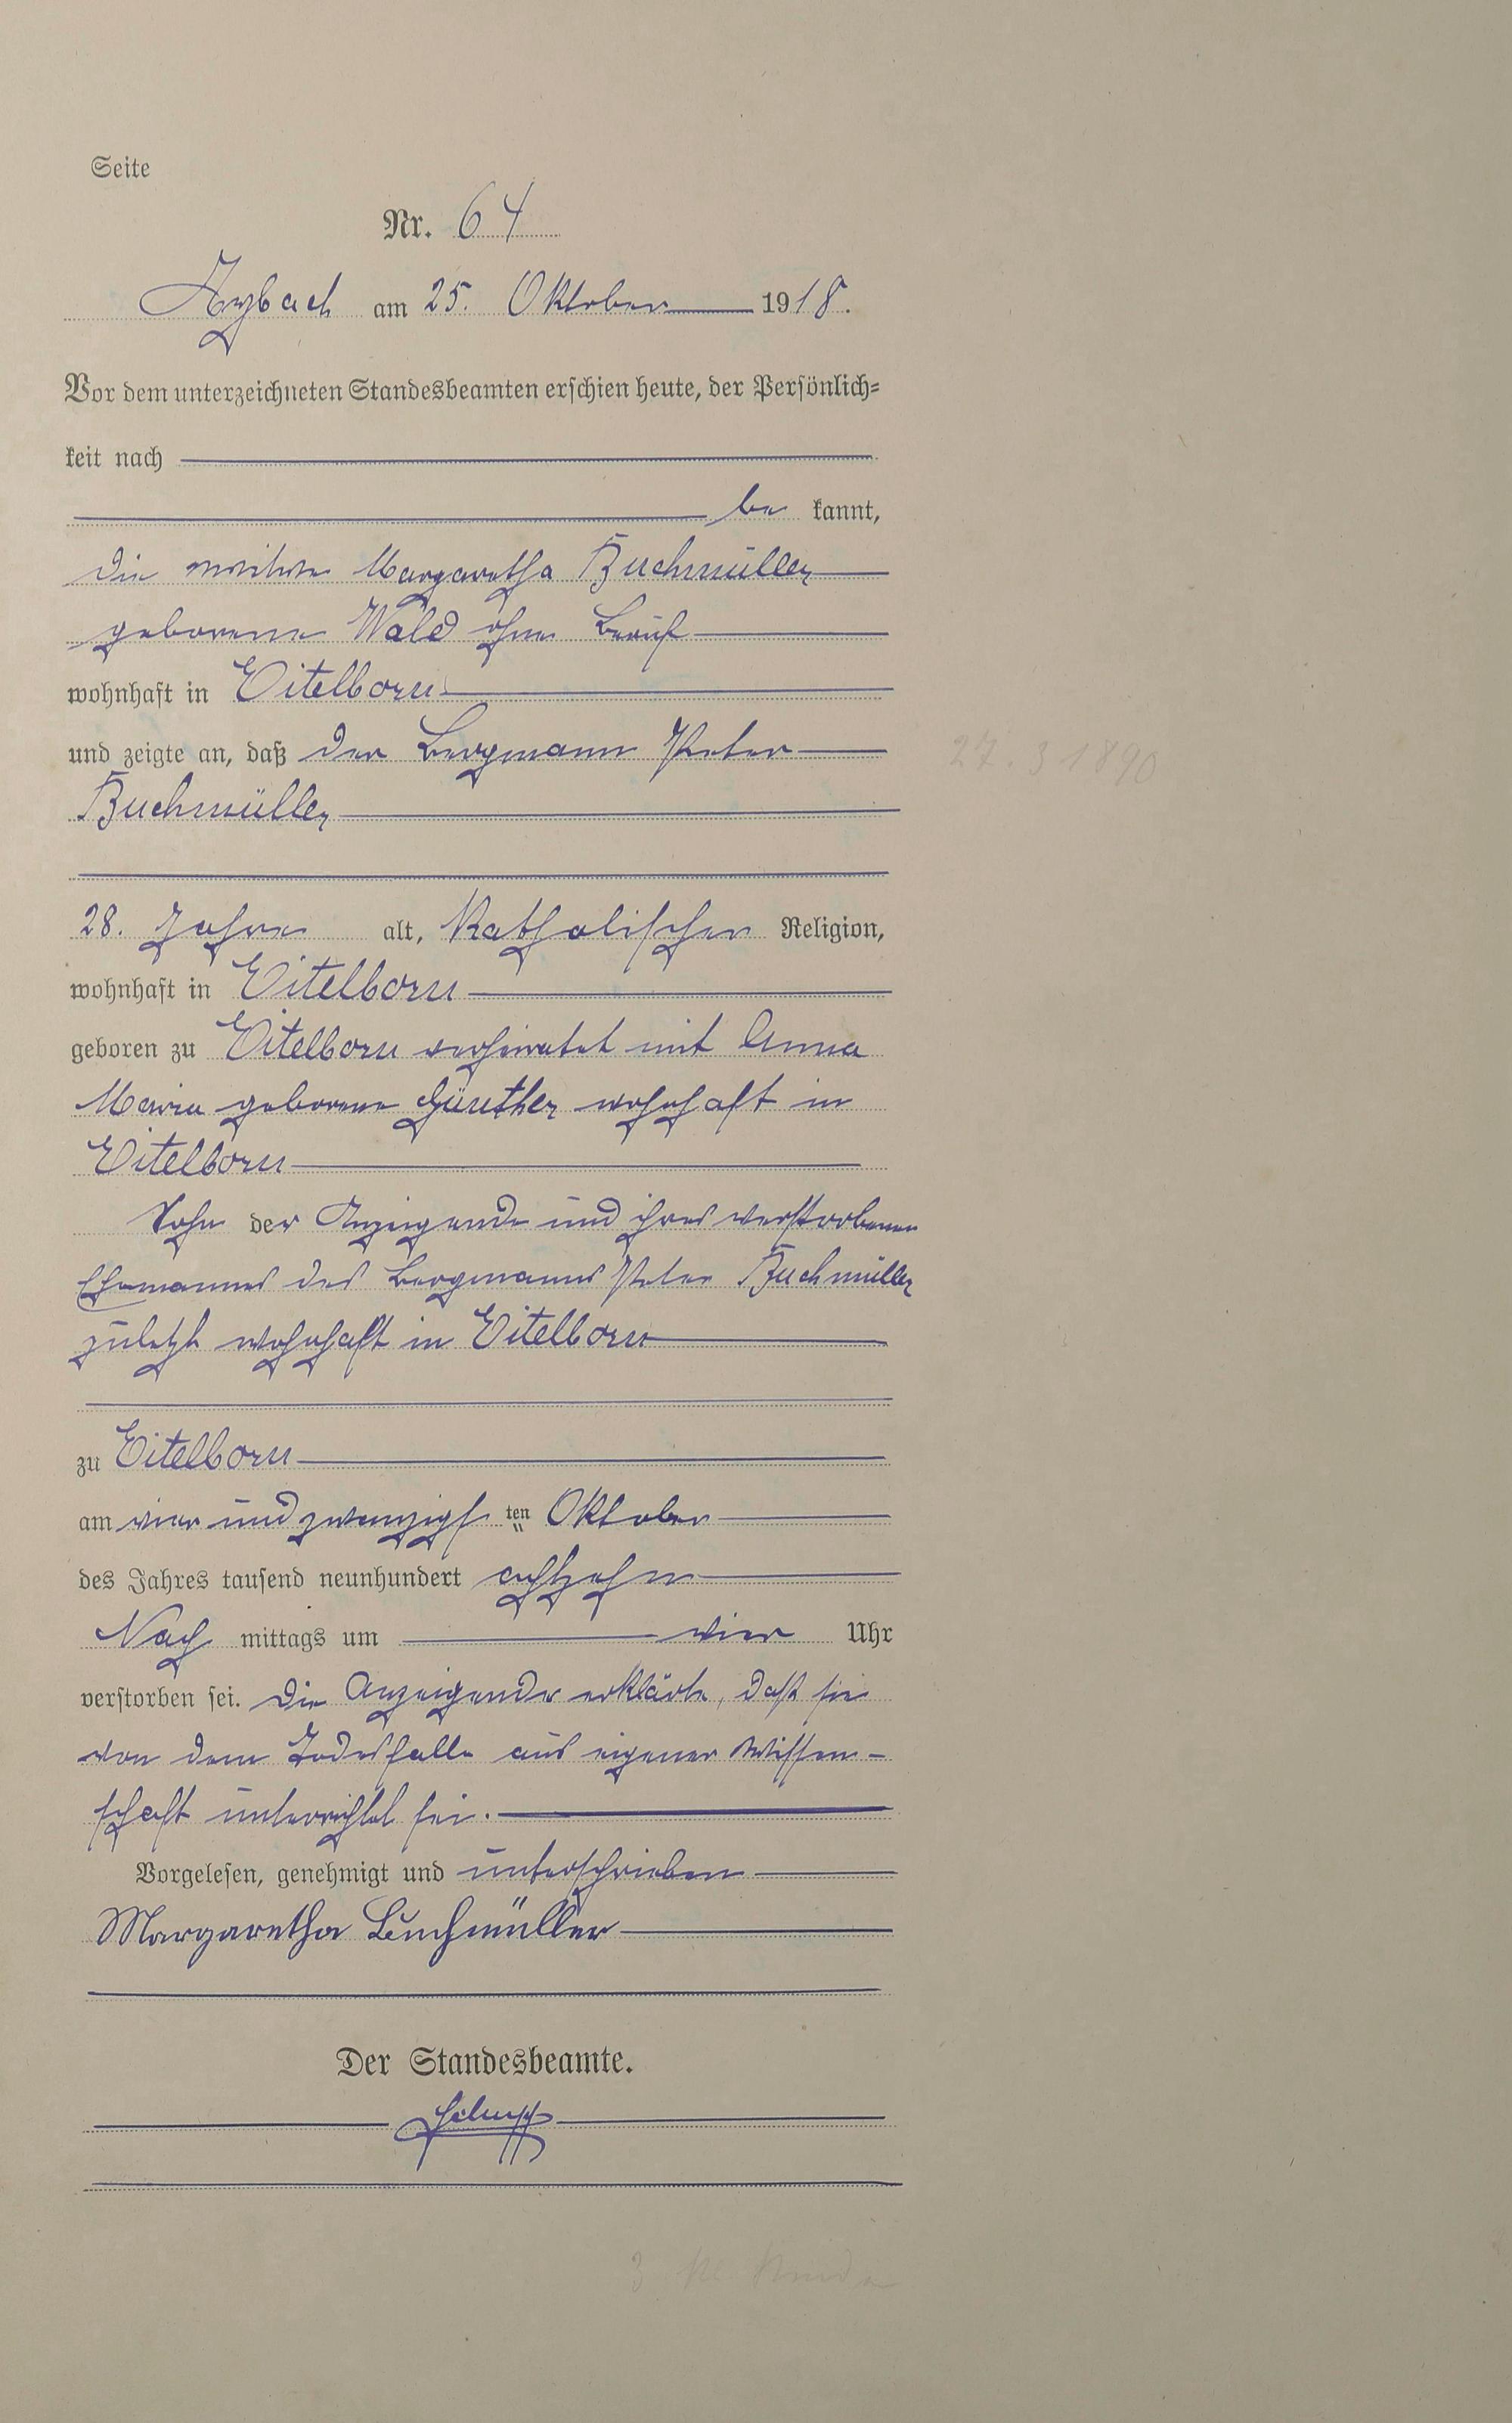 Seite
Nr. 64
Arzbach am 25. Oktober 1918.
Vor dem unterzeichneten Standesbeamten erschien heute, der Persönlich=
keit nach
be kannt,
die Witwe Margaretha Buchmüller
geborene Wald ohne Beruf
wohnhaft in Eitelborn
und zeigte an, daß der Bergmann Peter
27. 3 1890
Buchmüller
28. Jahre alt, Katholischer Religion,
wohnhaft in Eitelborn
geboren zu Eitelborn verheiratet mit Anna
Maria geborene Günther wohnhaft in
Eitelborn
Sohn der Anzeigende und ihres verstorbenen
Ehemannes des Bergmanns Peter Buchmüller
zuletzt wohnhaft in Eitelborn
zu Eitelborn
am vier und zwanzigs ten Oktober
des Jahres tausend neunhundert achtzehn
Nach mittags um vier Uhr
verstorben sei. Die Anzeigende erklärte, daß sie
von dem Todesfalle aus eigener Wissen-
schaft unterrichtet sei.
Vorgelesen, genehmigt und unterschrieben
Margaretha Buchmüller
Der Standesbeamte.
3